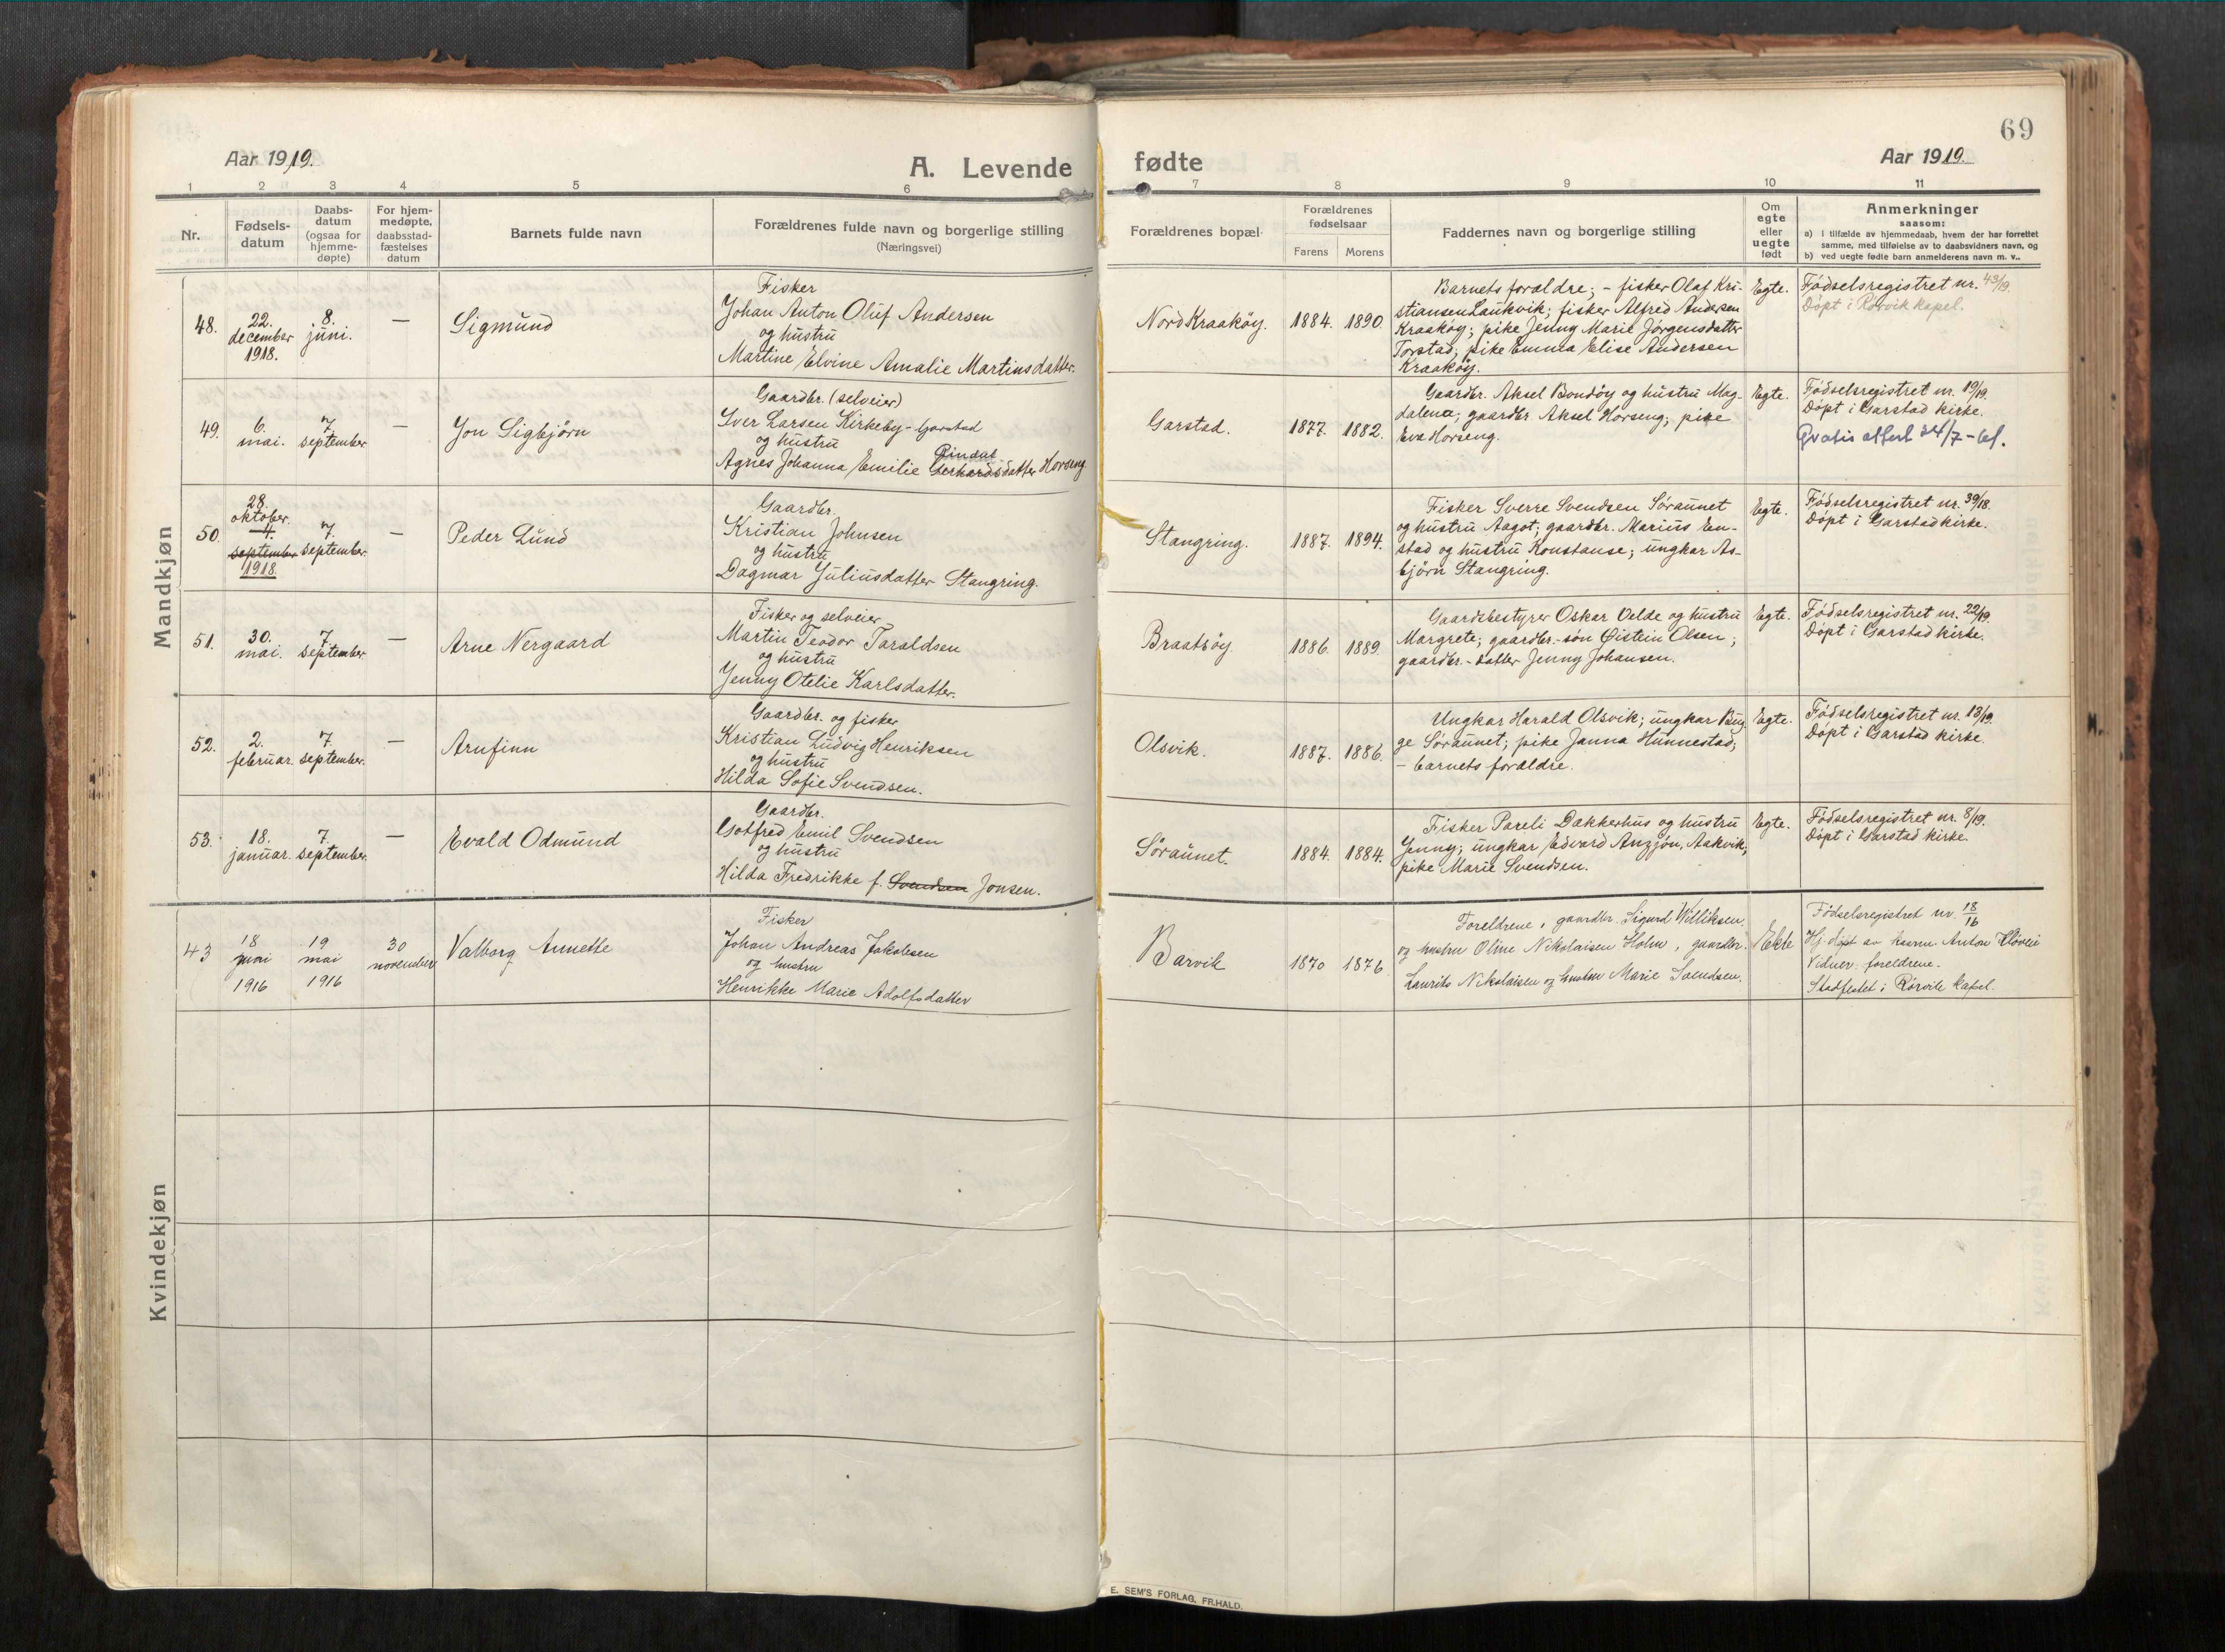 69
Aar 1919.
A. Levende
fødte
Aar 1919.
1 2 3 4 5 6 7 8 9 10 11
Nr.
Fødsels-
datum
Daabs-
datum
(ogsaa for
hjemme-
døpte)
For hjem-
medøpte,
daabsstad-
fæstelses
datum
Barnets fulde navn
Forældrenes fulde navn og borgerlige stilling
(Næringsvei)
Forældrenes bopæl
Forældrenes
fødselsaar
Farens Morens
Faddernes navn og borgerlige stilling
Om
egte
eller
uegte
født
Anmerkninger
saasom:
a) I tilfælde av hjemmedaab, hvem der har forrettet
samme, med tilføielse av to daabsvidners navn, og
b) ved uegte fødte barn anmelderens navn m. v..
Mandkjøn
48.
22.
december
1918.
8.
juni.
—
Sigmund
Fisker
Johan Anton Oluf Andersen
og hustru
Martine Elvine Amalie Martinsdatter.
Nord Kraakøy.
1884. 1890.
Barnets forældre; - fisker Olaf Kri-
stiansen Laukvik; fisker Alfred Andersen
Kraakøy; pike Jenny Marie Jørgensdatter
Torstad; pike Emma Elise Andersen
Kraakøy.
Egte.
Fødselsregistret nr. 43/19.
Døpt i Rørvik kapel.
49.
6.
mai.
7.
september
—
Jon Sigbjørn
Gaardbr. (selveier)
Iver Larsen Kirkeby - Garstad
og hustru
Rindal
Agnes Johanna Emilie Gerhardsdatter Horseng
Garstad.
1877. 1882.
Gaardbr. Aksel Bondøy og hustru Mag-
dalena; gaardbr. Aksel Horseng; pike
Eva Horseng.
Egte.
Fødselsregistret nr. 19/19.
Døpt i Garstad kirke.
Gratis attest 24/7-61.
50.
28.
oktober.
4.
september
1918.
7.
september.
—
Peder Lund
Gaardbr.
Kristian Johnsen
og hustru
Dagmar Juliusdatter Stangring.
Stangring.
1887. 1894.
Fisker Sverre Svendsen Søraunet
og hustru Aagot; gaardbr. Marius En-
stad og hustru Konstanse; ungkar As-
bjørn Stangring.
Egte.
Fødselsregistret nr. 39/18.
Døpt i Garstad kirke.
51.
30.
mai.
7.
september.
—
Arne Nergaard
Fisker og selveier
Martin Teodor Taraldsen
og hustru
Jenny Otelie Karlsdatter.
Braatøy
1886. 1889.
Gaardsbestyrer Oskar Velde og hustru
Margrete; gaardbr.-søn Øistein Olsen;
gaardbr.-datter Jenny Johansen.
Egte.
Fødselsregistret nr. 22/19.
Døpt i Garstad kirke.
52.
2.
februar.
7.
september.
—
Arnfinn
Gaardbr. og fisker
Kristian Ludvig Henriksen
og hustru
Hilda Sofie Svendsen.
Olsvik.
1887. 1886.
Ungkar Harald Olsvik; ungkar Byg-
ge Søraunet; pike Janna Hunnestad;
- barnets forældre.
Egte.
Fødselsregistret nr. 13/19.
Døpt i Garstad kirke.
53.
18.
januar.
7.
september.
—
Evald Odmund
Gaardbr.
Gotfred Emil Svendsen
og hustru
Hilda Fredrikke f. Svendsen Jonsen.
Søraunet.
1884. 1884.
Fisker Pareli Dækkerhus og hustru
Jenny; ungkar Edvard Aakvik;
pike Marie Svendsen.
Egte.
Fødselsregistret nr. 8/19.
Døpt i Garstad kirke.
Kvindekjøn
43
18
1916
19
mai
1916
30
november
Valborg Annette
Fisker
Johan Andreas Jakobsen
og hustru
Henrikke Marie Adolfsdatter
Barvik
1870 1876
Foreldrene, gaardbr. Sigurd Williksen
og hustru Oline Nikolaisen Holm, gaardbr.
Laurits Nikolaisen og hustru Marie Svendsen.
Ekte
Fødselsregistret nr. 18/16
Hj. døpt av Anton Kløveie
Vidner: foreldrene.
Stadfestet i Rørvik kapel.
E. SEM'S FORLAG, FR.HALD.